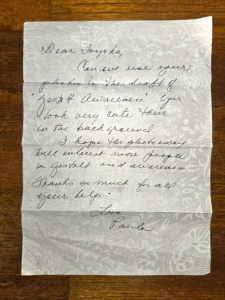 Dear Toyoko,
Can we use your
photo in the draft of
Gest & Awareness. You
look very cute there
in the background.
I hope the photo essay
will interest more people
in gestalt and awareness
Thanks so much for all
your help.
Love
Paula